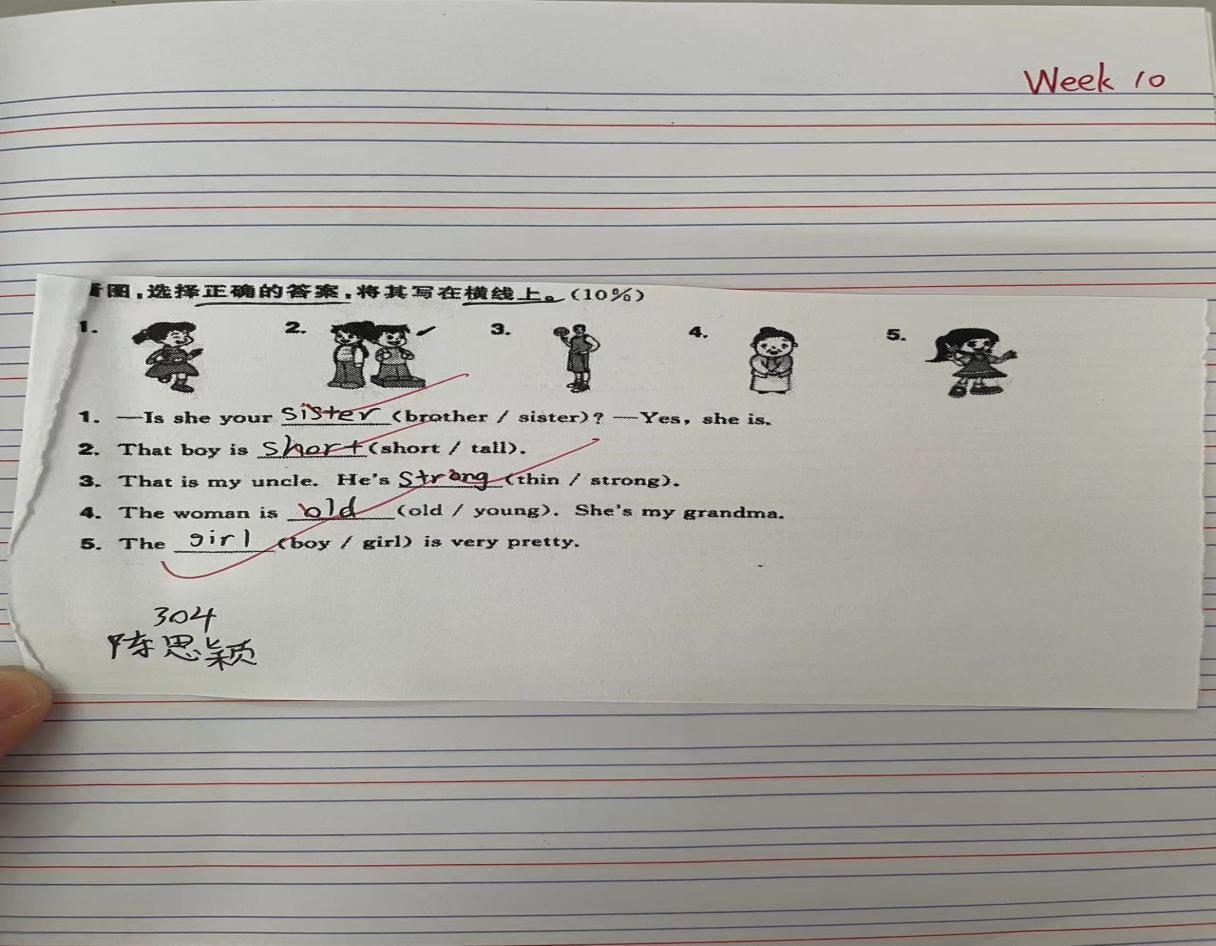 Week 10
看图,选择正确的答案,将其写在横线上。(10%)
1. 2. 3. 4. 5.
1. —Is she your sister (brother / sister)? —Yes, she is.
2. That boy is short (short / tall).
3. That is my uncle. He's strong (thin / strong).
4. The woman is old (old / young). She's my grandma.
5. The girl (boy / girl) is very pretty.
304
陈思颖